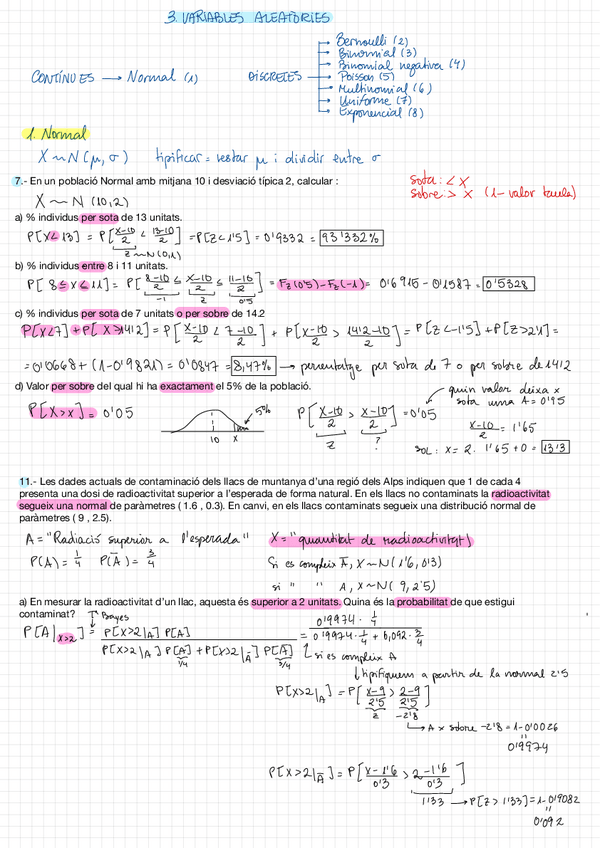 3. VARIABLES ALEATÒRIES
CONTÍNUES → Normal (1)
DISCRETES
Bernoulli (2)
Binomial (3)
Binomial negativa (4)
Poisson (5)
Multinomial (6)
Uniforme (7)
Exponencial (8)
1. Normal
X ~ N(μ, σ) tipificar = restar μ i dividir entre σ
sota: < X
sobre: > X (1 - valor taula)
7.- En un població Normal amb mitjana 10 i desviació típica 2, calcular :
X ~ N (10,2)
a) % individus per sota de 13 unitats.
P[X<13] = P[X-10/2 < 13-10/2] = P[Z<1'5] = 0'9332 = 93'332%
Z ~ N(0,1)
b) % individus entre 8 i 11 unitats.
P[8≤X≤11] = P[8-10/2 ≤ X-10/2 ≤ 11-10/2] = Fz(0'5) - Fz(-1) = 0'6915 - 0'1587 = 0'5328
-1 Z 0'5
c) % individus per sota de 7 unitats o per sobre de 14.2
P[X<7] + P[X>14'2] = P[X-10/2 < 7-10/2] + P[X-10/2 > 14'2-10/2] = P[Z<-1'5] + P[Z>2'1] =
= 0'0668 + (1-0'9821) = 0'0847 = 8,47% → percentatge per sota de 7 o per sobre de 14'2
d) Valor per sobre del qual hi ha exactament el 5% de la població.
P[X>x] = 0'05
5%
10 x
P[X-10/2 > x-10/2] = 0'05
Z ?
quin valor deixa x
sota una A = 0'95
x-10/2 = 1'65
SOL: x = 2 · 1'65 + 0 = 13'3
11.- Les dades actuals de contaminació dels llacs de muntanya d'una regió dels Alps indiquen que 1 de cada 4
presenta una dosi de radioactivitat superior a l'esperada de forma natural. En els llacs no contaminats la radioactivitat
segueix una normal de paràmetres ( 1.6 , 0.3). En canvi, en els llacs contaminats segueix una distribució normal de
paràmetres ( 9 , 2.5).
A = "Radiació superior a l'esperada"
X = "quantitat de radioactivitat"
P(A) = 1/4 P(Ā) = 3/4
Si es compleix Ā, X ~ N(1'6, 0'3)
si " " A, X ~ N(9, 2'5)
a) En mesurar la radioactivitat d'un llac, aquesta és superior a 2 unitats. Quina és la probabilitat de que estigui
contaminat?
Bayes
P[A|X>2] = P[X>2|A] P[A] / P[X>2|A] P[A] + P[X>2|Ā] P[Ā] = 0'9974 · 1/4 / 0'9974 · 1/4 + 0,092 · 3/4
1/4 3/4
si es compleix A
tipifiquem a partir de la normal 2'5
P[X>2|A] = P[X-9/2'5 > 2-9/2'5]
Z -2'8
A x sobre -2'8 = 1-0'0026
0'9974
P[X>2|Ā] = P[X-1'6/0'3 > 2-1'6/0'3]
1'33 → P[Z>1'33] = 1-0'9082
0'092